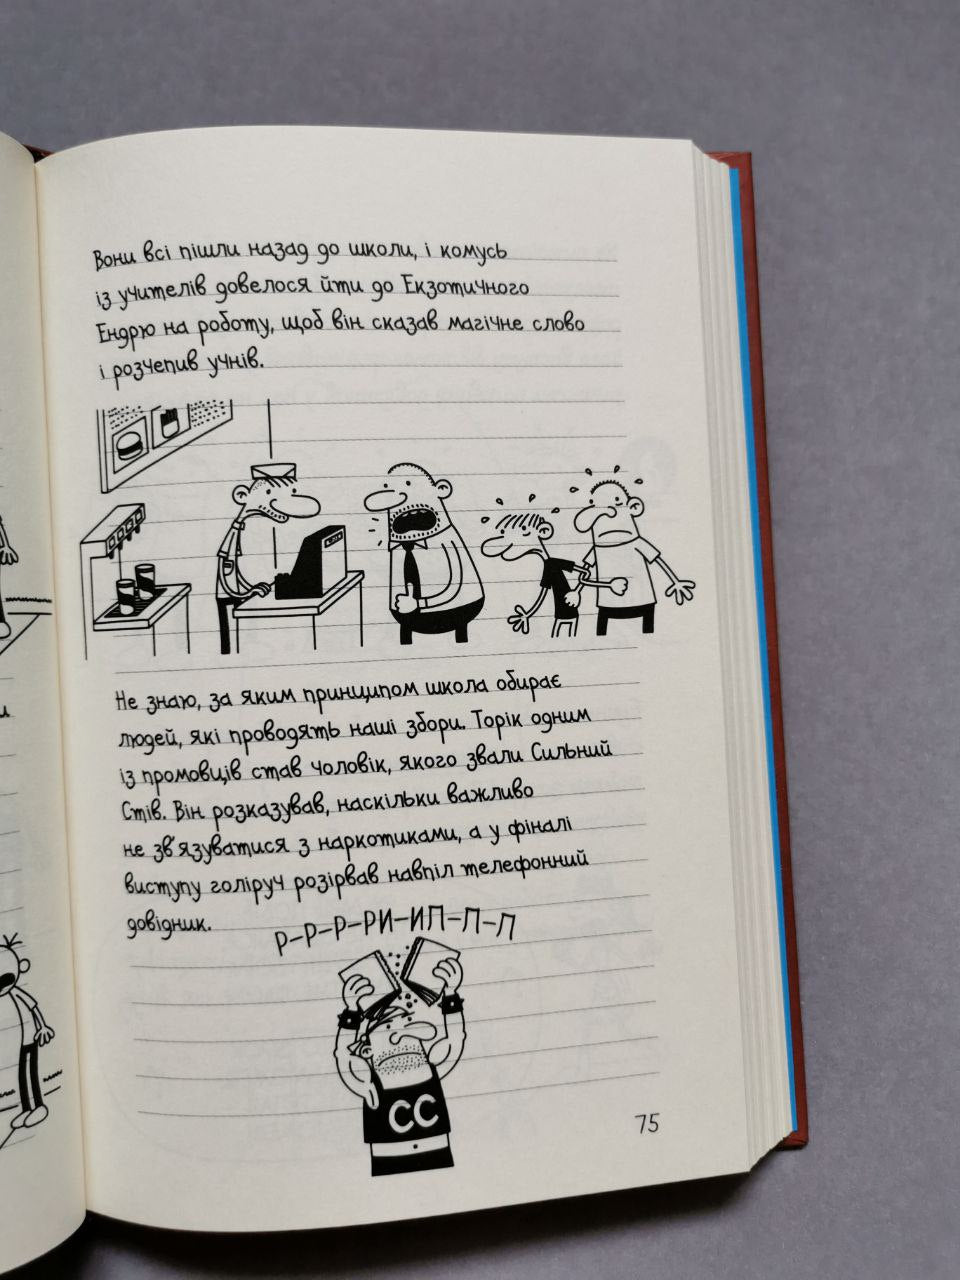 Вони всі пішли назад до школи, і комусь
із учителів довелося йти до Екзотичного
Ендрю на роботу, щоб він сказав магічне слово
і розчепив учнів.
Не знаю, за яким принципом школа обирає
людей, які проводять наші збори. Торік одним
із промовців став чоловік, якого звали Сильний
Стів. Він розказував, наскільки важливо
не зв'язуватися з наркотиками, а у фіналі
виступу голіруч розірвав навпіл телефонний
довідник.
Р-Р-Р-РИ-ИП-П-П
СС
75